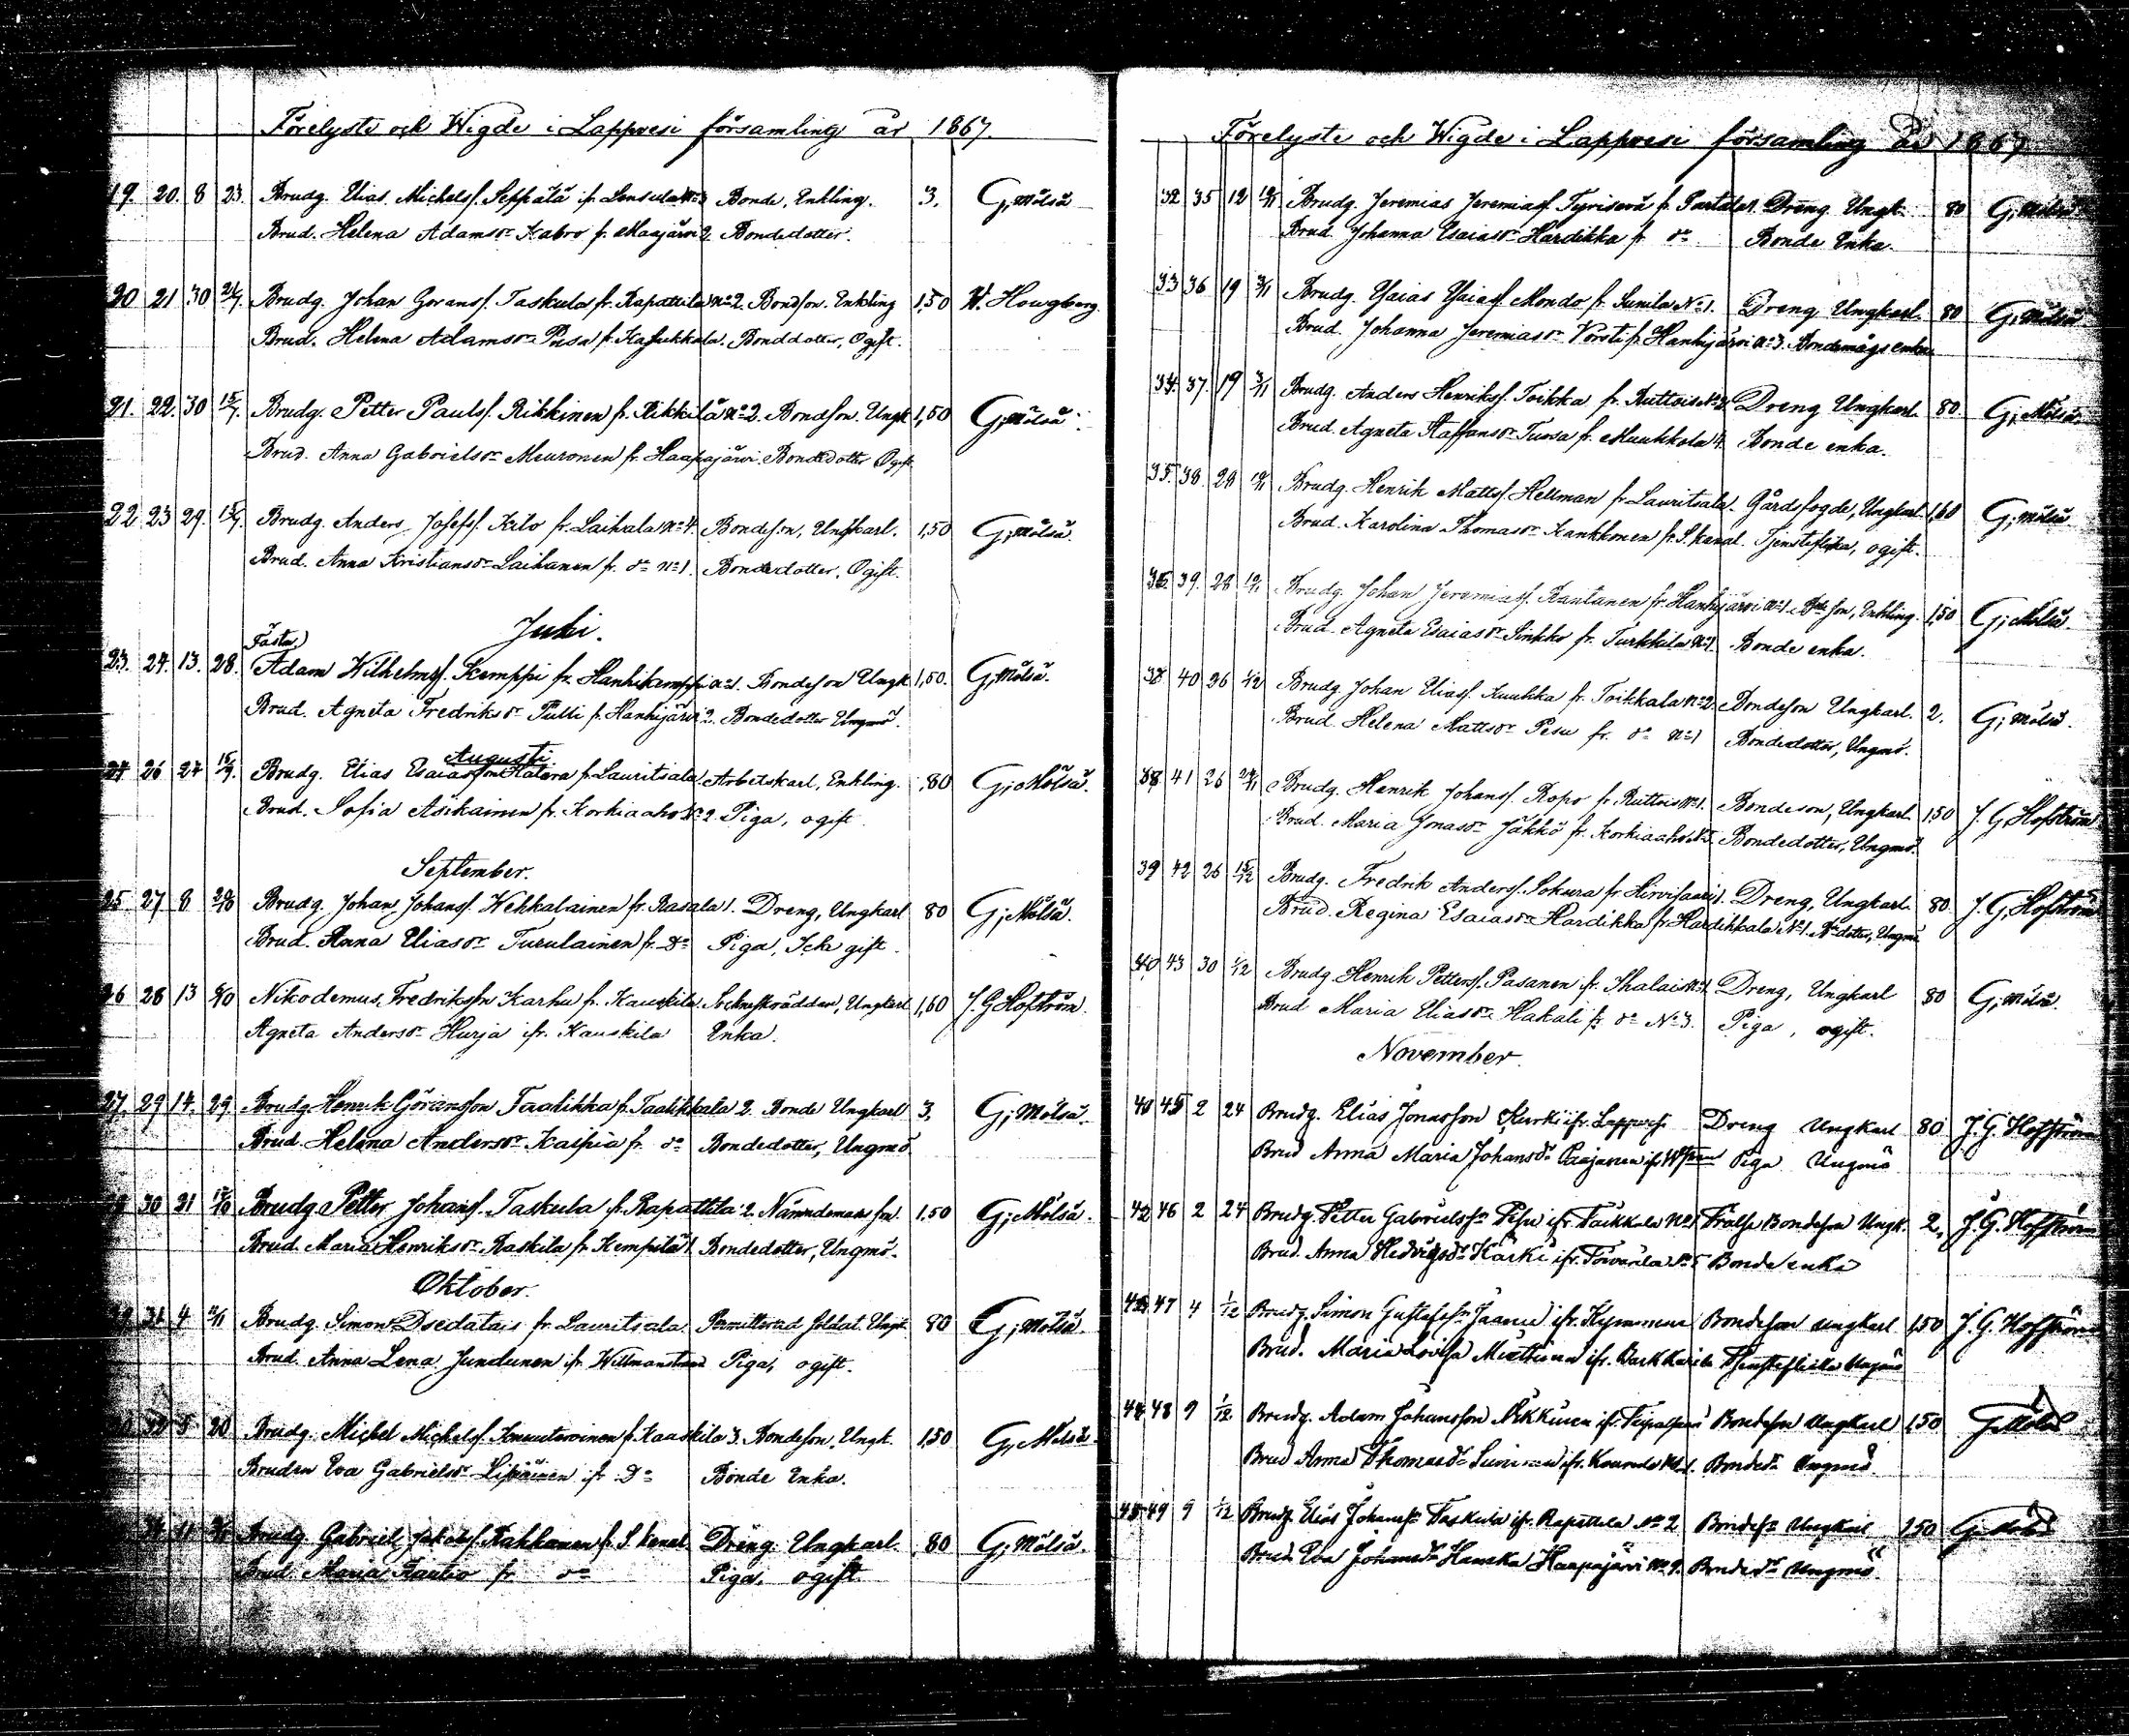 Förelyste och Wigde i Lappvesi församling år 1867.
19. 20. 8 23. Brudg. Elias Michelsf. Seppälä fr. Lensula No 3 Bonde, Enkling. 3. G; Mölsä
Brud. Helena Adamsdr Kabro fr. Maajärvi 2. Bondedotter.
20 21 30 21/7. Brudg. Johan Goransf. Taskula fr. Rapattila No 2. Bondson. Enkling 1,50 W. Hougberg.
Brud. Helena Adamsdr Pusa fr. Bonddotter, Ogift.
21. 22. 30 15/7. Brudg. Petter Paulsf. Rikkinen fr. Rikkilä No 2. Bondson. Ungk. 1,50 G; Mölsä.
Brud. Anna Gabrielsdr Meuronen fr. Haapajärvi. Bondedotter Ogift.
22 23 29. 15/7. Brudg. Anders Josefsf. Kilo fr. Laihala No 4. Bondeson, Ungkarl. 1,50 G; Mölsä.
Brud. Anna Kristiansdr Laihanen fr. do No 1. Bondedotter, Ogift.
Juli.
Fästm.
23. 24. 13. 28. Adam Wilhelmsf. Kemppi fr. Hanhikemppi No 1. Bondeson Ungk. 1,50. G; Mölsä.
Brud. Agneta Fredriksdr Pulli fr. Hanhijärvi 2. Bondedotter Ungmö.
Augusti.
24 26 27 15/9. Brudg. Elias Esaiasson Katara fr. Lauritsala Arbetskarl, Enkling. 80 G; Mölsä.
Brud. Sofia Asikainen fr. Korkiaaho No 2. Piga, ogift.
September.
25 27 8 20/10 Brudg. Johan Johansf. Wehkalainen fr. Rasala 1. Dreng, Ungkarl 80 G; Mölsä.
Brud. Anna Eliasdr Turulainen fr. Do Piga, Icke gift.
26 28 13 6/10 Nikodemus Fredriksson Karhu fr. Kauskila Sockneskräddare, Ungkarl 1,60 J. G. Hofström.
Agneta Andersdr Hurja ifr. Kauskila Enka.
27. 29 14. 29. Brudg. Henrik Göransson Taalikka fr. Taalikkala 2. Bonde Ungkarl 3. G; Mölsä.
Brud. Helena Andersdr Kaipia fr. do Bondedotter, Ungmö
30 21 Brudg. Petter Johansf. Taskula fr. Rapattila 2. Nämndemans son. 1.50 G; Mölsä.
Brud. Maria Henriksdr Raskila fr. Kempilä 1 Bondedotter, Ungmö.
Oktober.
31. 4 Brudg. Simon fr. Lauritsala. Permitterad Soldat. Ungk. 80 G; Mölsä.
Brud. Anna Lena Jundunen ifr. Willmanstrand Piga, ogift.
32 5 20 Brudg. Michel Michelsf. Knuutoroinen fr. Kauskila 3. Bondeson, Ungk. 1,50 G; Mölsä.
Bruden Eva Gabrielsdr Lipiäinen ifr. Do Bonde Enka.
Brudg. Gabriel Jakobsf. Kakkanen fr. S. Kanal. Dräng. Ungkarl. 80 G; Mölsä.
Brud. Maria Rautio fr. do Piga. ogift.
Förelyste och Wigde i Lappvesi församling år 1867
32 35 12 Brudg. Jeremias Jeremiasf. Tyrisevä fr. Partala 1. Dreng. Ungk. 80 G; Mölsä
Brud. Johanna Esaiasdr Hardikka fr. do Bonde Enka.
33 36 19 3/11 Brudg. Esaias Esaiasf. Mondo fr. Sunila No 1. Dreng Ungkarl. 80 G; Mölsä
Brud. Johanna Jeremiasdr Vorsti fr. Hanhijärvi No 3. Bondemågs enka
34. 37. 19 3/11 Brudg. Anders Henriksf. Toikka fr. Ruttois No 2 Dreng Ungkarl. 80 G; Mölsä.
Brud. Agneta Staffansdr Tursa fr. Muukkola 4. Bonde enka.
35. 38. 28 Brudg. Henrik Mattsf. Hellman fr. Lauritsala. Gårdsfogde, Ungkarl. 1,60 G; Mölsä.
Brud. Karolina Thomasdr Kankkonen fr. S. kanal. Tjensteflicka, ogift.
36 39. 28 Brudg. Johan Jeremiasf. Rautanen fr. Hanhijärvi No 1. Bdeson, Enkling. 1,50 G; Mölsä.
Brud. Agneta Esaiasdr Sinkko fr. Turkkila No 1. Bonde enka.
38 40 26 1/12 Brudg. Johan Eliasf. Kuukka fr. Toikkala No 2. Bondeson Ungkarl. 2. G; Mölsä.
Brud. Helena Mattsdr Pesu fr. do No 1 Bondedotter, Ungmö.
38 41 26 24/11 Brudg. Henrik Johansf. Ropo fr. Ruttois No 1. Bondeson, Ungkarl. 1,50 J. G. Hofström
Brud. Maria Jonasdr Jäkkö fr. Korkiaaho No 5. Bondedotter, Ungmö.
39 42 26 15/12 Brudg. Fredrik Andersf. Sokura fr. Hirvisaari 1. Dreng, Ungkarl. 80. J. G. Hofström
Brud. Regina Esaiasdr Hardikka fr. Hardikkala No 1. Bdedotter, Ungmö.
40 43 30 1/12 Brudg. Henrik Pettersf. Pasanen fr. Ihalais No 1. Dreng, Ungkarl 80 G; Mölsä.
Brud Maria Eliasdr Hakali fr. do No 3. Piga, ogift.
November.
40 45 2 24 Brudg. Elias Jonasson Kurki ifr. Lappvesi Dreng Ungkarl 80 J. G. Hofström
Brud Anna Maria Johansdr Paajanen ifr. Wstrand Piga Ungmö
42 46 2 24 Brudg. Petter Gabrielssn Pesu ifr. Toikkala No 1 Frälse Bondeson Ungk. 2, J. G. Hofström
Brud. Anna Hedvigsdr Kärki ifr. No 5 Bonde enka
47 4 1/12 Brudg. Simon Gustafssn Jaanu ifr. Kymmene Bondeson ungkarl 1,50 J. G. Hofström
Brud. Maria Lovisa Miettinen ifr. Tjensteflicka Ungmö
44 48 9 1/12 Brudg. Adam Johansson ifr. Bondeson Ungkarl 1,50 G. Mölsä
Brud Anna Thomasdr ifr. No 1. Bondedr Ungmö.
48 49 9 1/12 Brudg. Elias Johanssn Taskula ifr. Rapattila No 2 Bondesn Ungkarl 1,50 G. Mölsä
Brud. Eva Johansdr Hanska Haapajärvi No 9. Bondedr Ungmö.